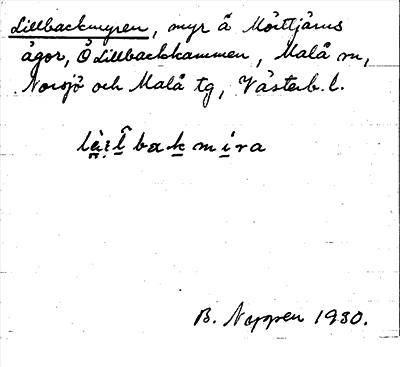 Lillbackmyren, myr å Mörttjärns
ägor, Ö Lillbackkammen, Malå sn,
Norsjö och Malå tg, Västerb. l.
B. Nyppen 1930.